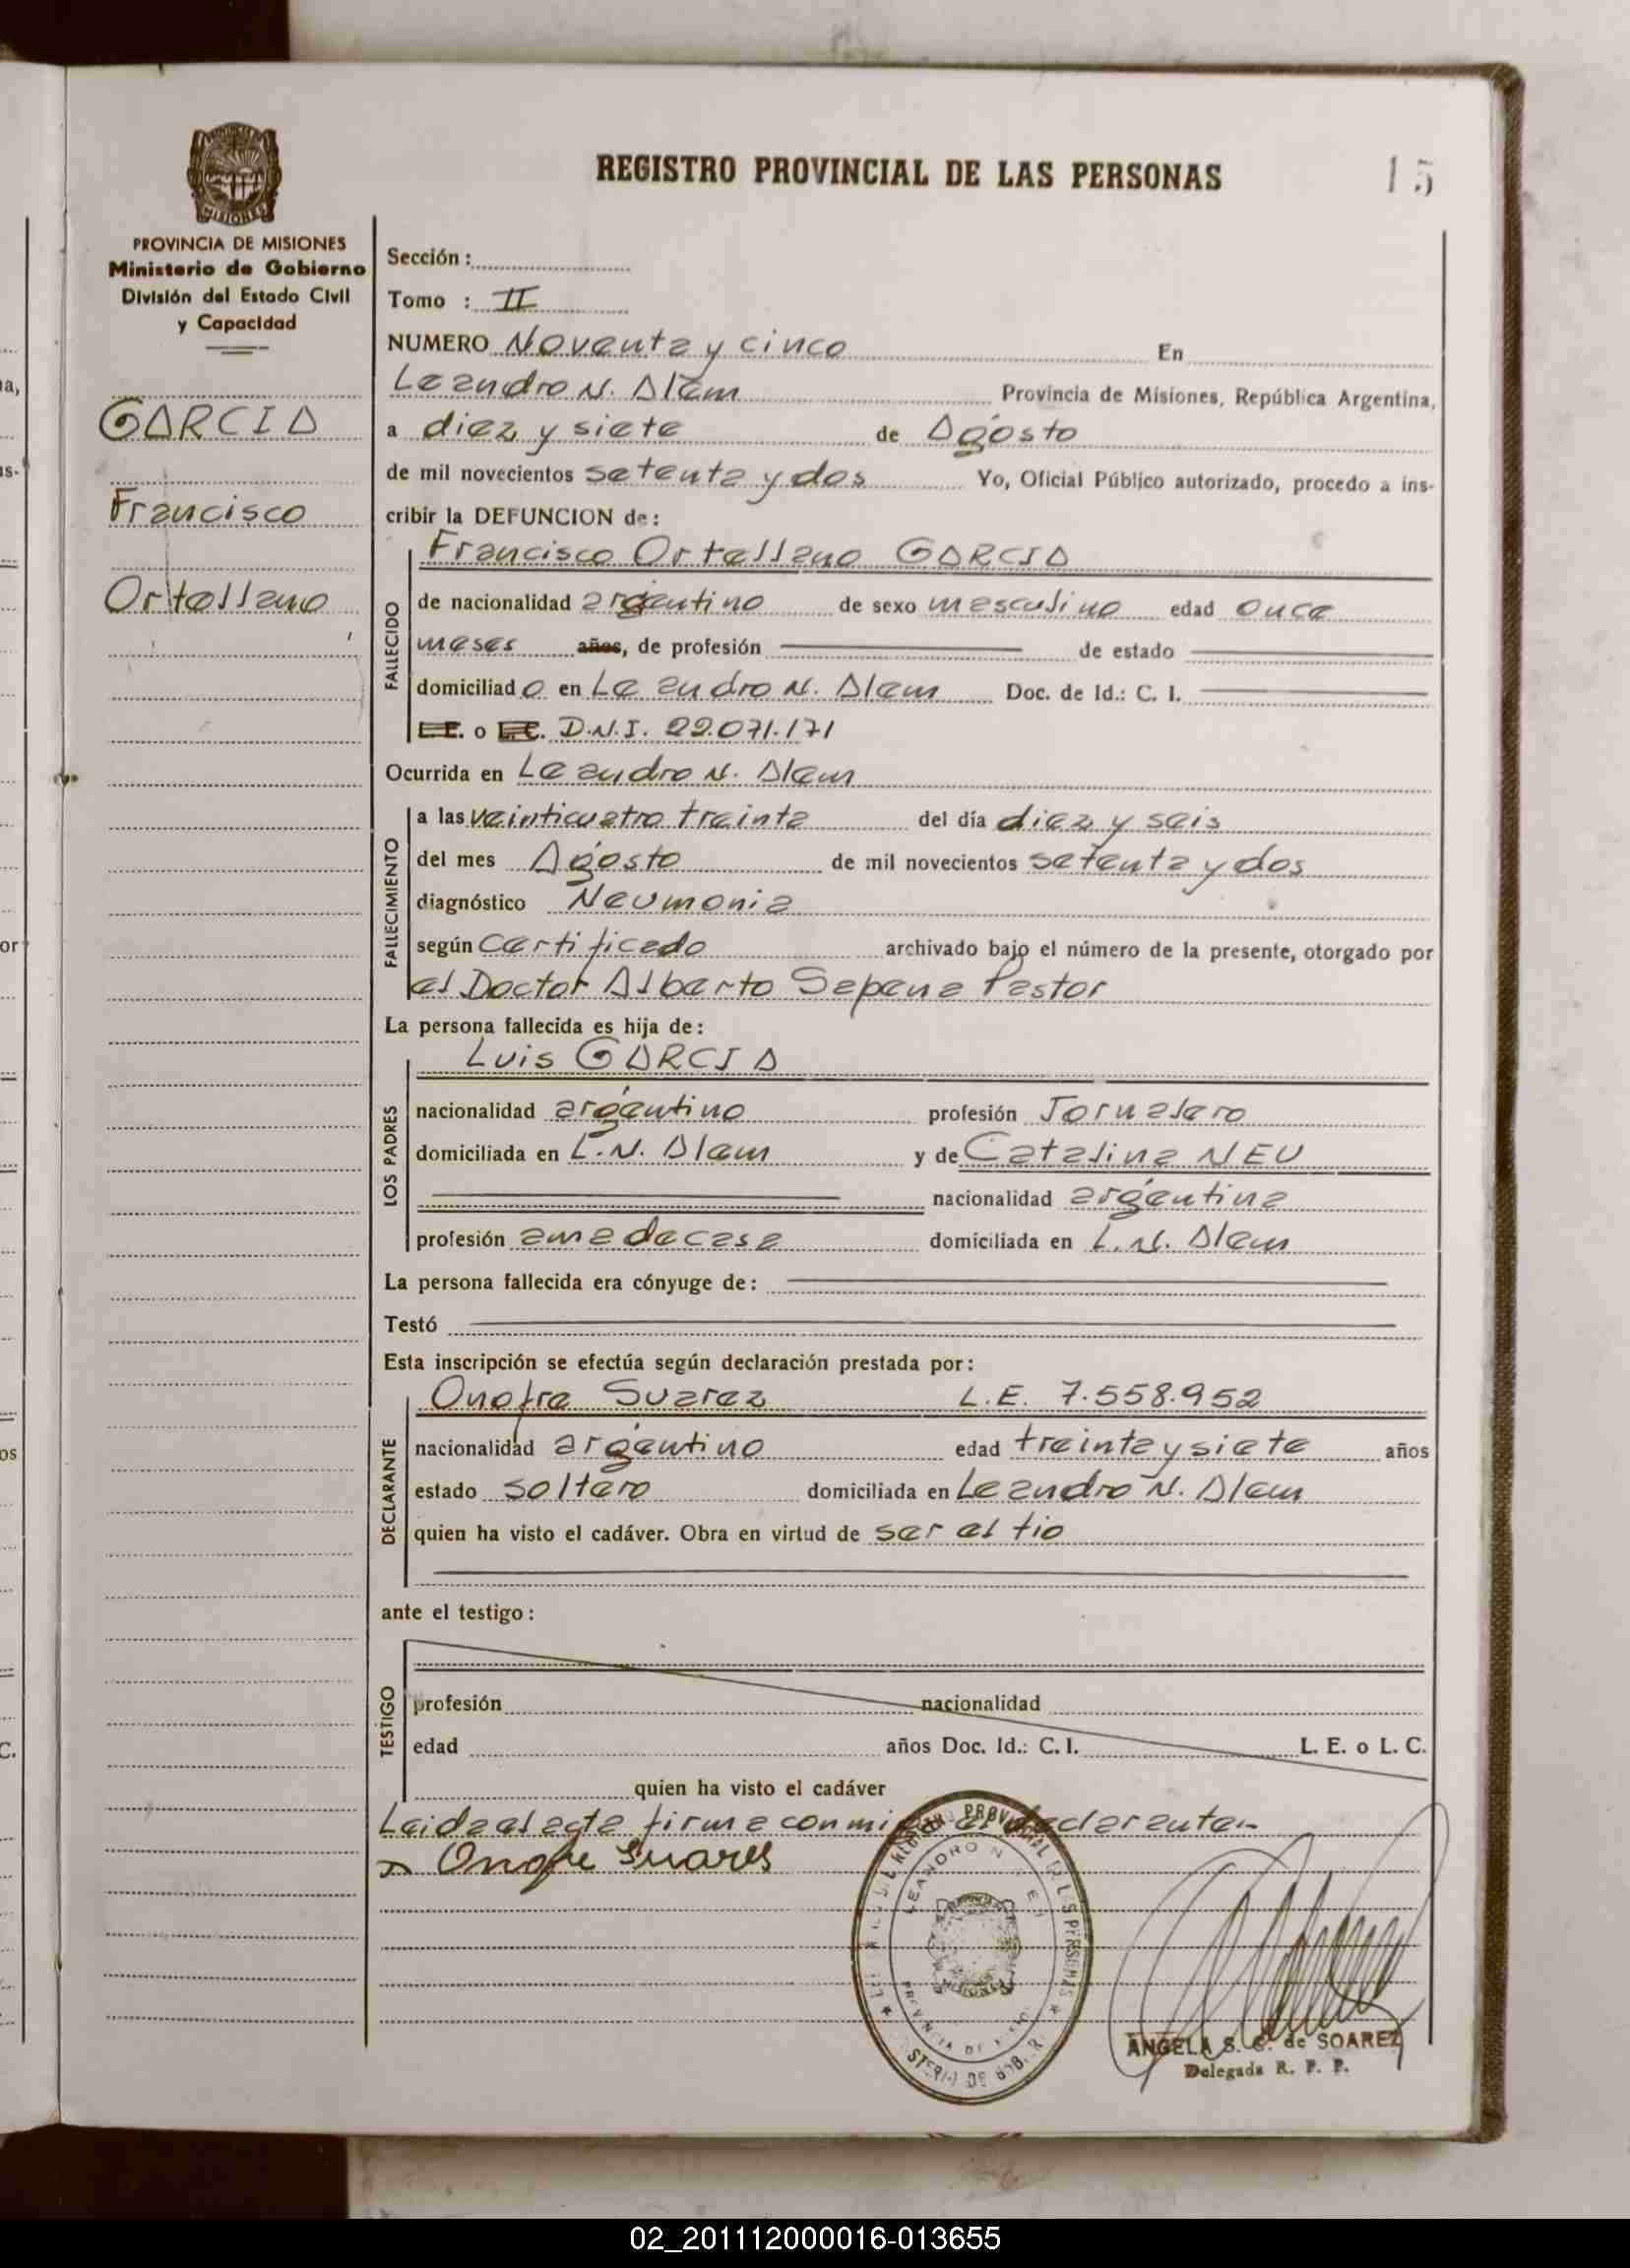 REGISTRO PROVINCIAL DE LAS PERSONAS
15
MISIONES
PROVINCIA DE MISIONES
Ministerio de Gobierno
División del Estado Civil
y Capacidad
GARCIA
Francisco
Ortellano
Sección :
Tomo : II
NUMERO Noventa y cinco En
Leandro N. Alem Provincia de Misiones, República Argentina,
a diez y siete de Agosto
de mil novecientos setenta y dos Yo, Oficial Público autorizado, procedo a ins-
cribir la DEFUNCION de :
Francisco Ortellano GARCIA
FALLECIDO
de nacionalidad argentino de sexo masculino edad once
meses años, de profesión de estado
domiciliad o en Leandro N. Alem Doc. de Id.: C. I.
L.E. o L.C. D.N.I. 22.071.171
Ocurrida en Leandro N. Alem
FALLECIMIENTO
a las veinticuatro treinta del día diez y seis
del mes Agosto de mil novecientos setenta y dos
diagnóstico Neumonia
según certificado archivado bajo el número de la presente, otorgado por
el Doctor Alberto Sapena Pastor
La persona fallecida es hija de :
LOS PADRES
Luis GARCIA
nacionalidad argentino profesión Jornalero
domiciliada en L.N. Alem y de Catalina NEU
nacionalidad argentina
profesión ama de casa domiciliada en L.N. Alem
La persona fallecida era cónyuge de :
Testó
Esta inscripción se efectúa según declaración prestada por :
DECLARANTE
Onofre Suarez L.E. 7.558.952
nacionalidad argentino edad treinta y siete años
estado soltero domiciliada en Leandro N. Alem
quien ha visto el cadáver. Obra en virtud de ser el tio
ante el testigo :
TESTIGO
profesión nacionalidad
edad años Doc. Id.: C. I. L. E. o L. C.
quien ha visto el cadáver
Leida el acta firma con migo el declarante.-
x Onofre Suares
ANGELA S. G. de SOAREZ
Delegada R. P. P.
02_201112000016-013655